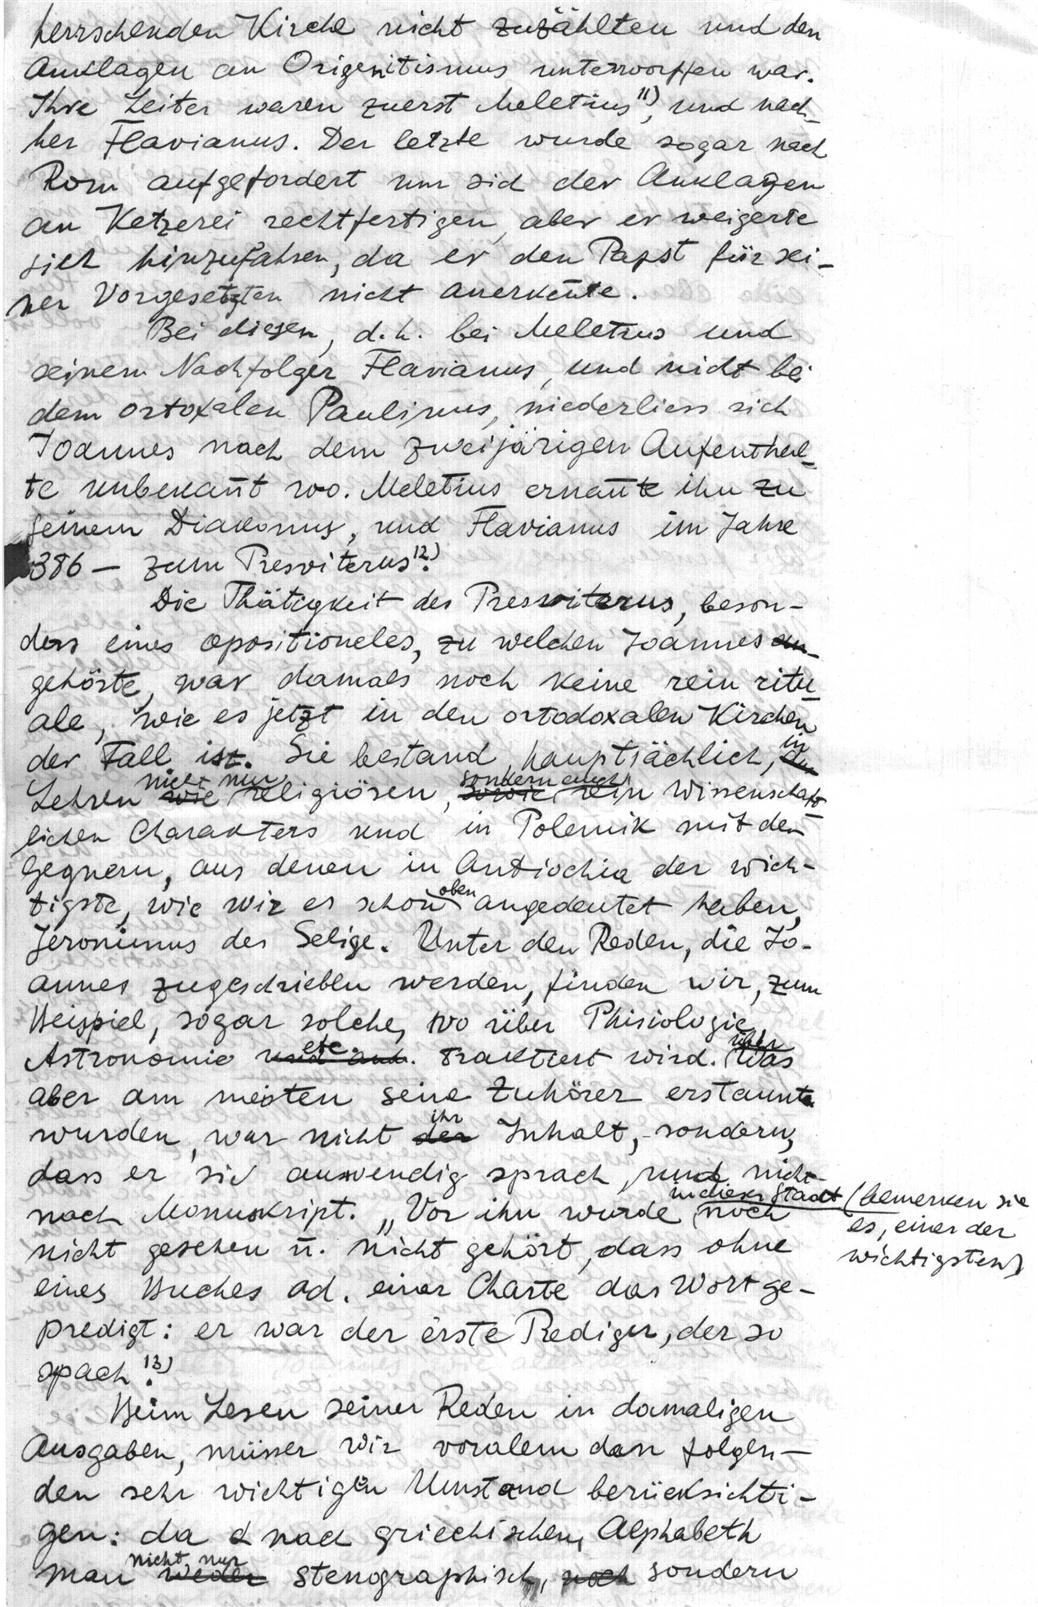 herrschenden Kirche nicht zuzählten und den
Anklagen an Origenitismus unterworfen war.
Ihre Leiter waren zuerst Meletius 11), und nach-
her Flavianus. Der letzte wurde sogar nach
Rom aufgefordert um sich der Anklagen
an Ketzerei rechtfertigen, aber er weigerte
sich hinzufahren, da er den Papst für sei-
ner Vorgesetzten nicht anerkente.
Bei diesen, d.h. bei Meletius und
seinem Nachfolger Flavianus, und nicht bei
dem ortoxalen Paulinus, niederliess sich
Joannes nach dem zweijärigen Aufenthal-
te unbekant wo. Meletius ernante ihn zu
seinem Diakonus, und Flavianus im Jahre
386 — zum Presviterus 12).
Die Thätigkeit des Presviterus, beson-
ders eines opositioneles, zu welchen Joannes an-
gehörte, war damals noch keine rein ritu-
ale, wie es jetzt in den ortodoxalen Kirchen
der Fall ist. Sie bestand, hauptsächlich, in
Lehren nicht nur religiösen, sondern auch rein wissenschaft-
lichen Charakters und in Polemik mit den
Gegnern, aus denen in Antiochia der wich-
tigste, wie wir es schon oben angedeutet haben,
Jeronimus der Selige. Unter den Reden, die Jo-
annes zugeschrieben werden, finden wir, zum
Beispiel, sogar solche, wo über Phisiologie,
Astronomie etc. traktiert wird. Über Was
aber am meisten seine Zuhörer erstaunte
wurden, war nicht ihr Inhalt, sondern,
dass er sie auswendig sprach, und nicht
nach Manuskript. „Vor ihn wurde in dieser Stadt (bemerken sie
es, einer der
wichtigsten) noch
nicht gesehen u. nicht gehört, dass ohne
eines Buches od. einer Charte das Wort ge-
predigt: er war der erste Prediger, der so
spach 13).
Beim Lesen seiner Reden in damaligen
Ausgaben, müsser wir voralem den folgen-
den sehr wichtigen Umstand berücksichti-
gen: da nach griechischen Alphabeth
man nicht nur stenographisch, sondern